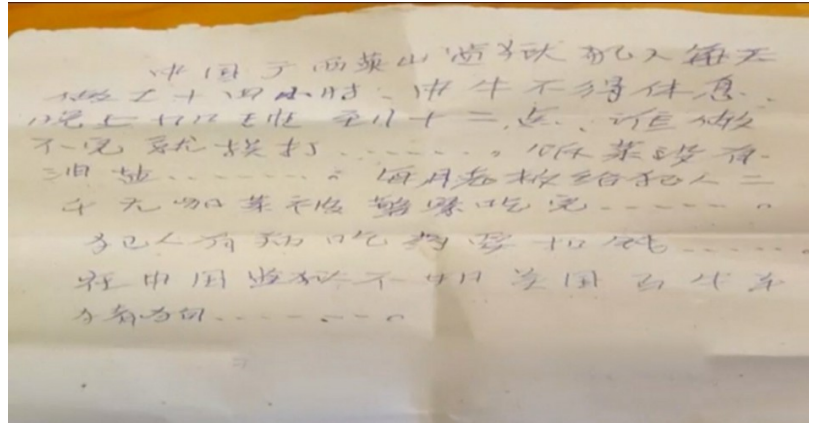 中国广西英山监狱犯人每天
做工十四小时、中午不得休息、
晚上加班到十二点、谁做
不完就挨打............。吃菜没有
油盐............。每月老板给犯人二
千元加菜被警察吃完............。
犯人有病吃药要扣钱............。
在中国监狱不 美国